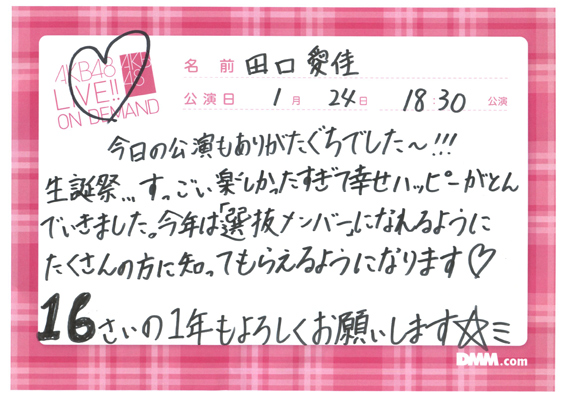 AKB48
LIVE!!
ON DEMAND
AKB
48
名前 田口愛佳
公演日 1月 24日 18:30 公演
今日の公演もありがたぐちでした〜!!!
生誕祭...すっごい楽しかったすぎて幸せハッピーがとん
でいきました。今年は「選抜メンバー」になれるように
たくさんの方に知ってもらえるようになります♡
16さいの1年もよろしくお願いします☆ミ
DMM.com